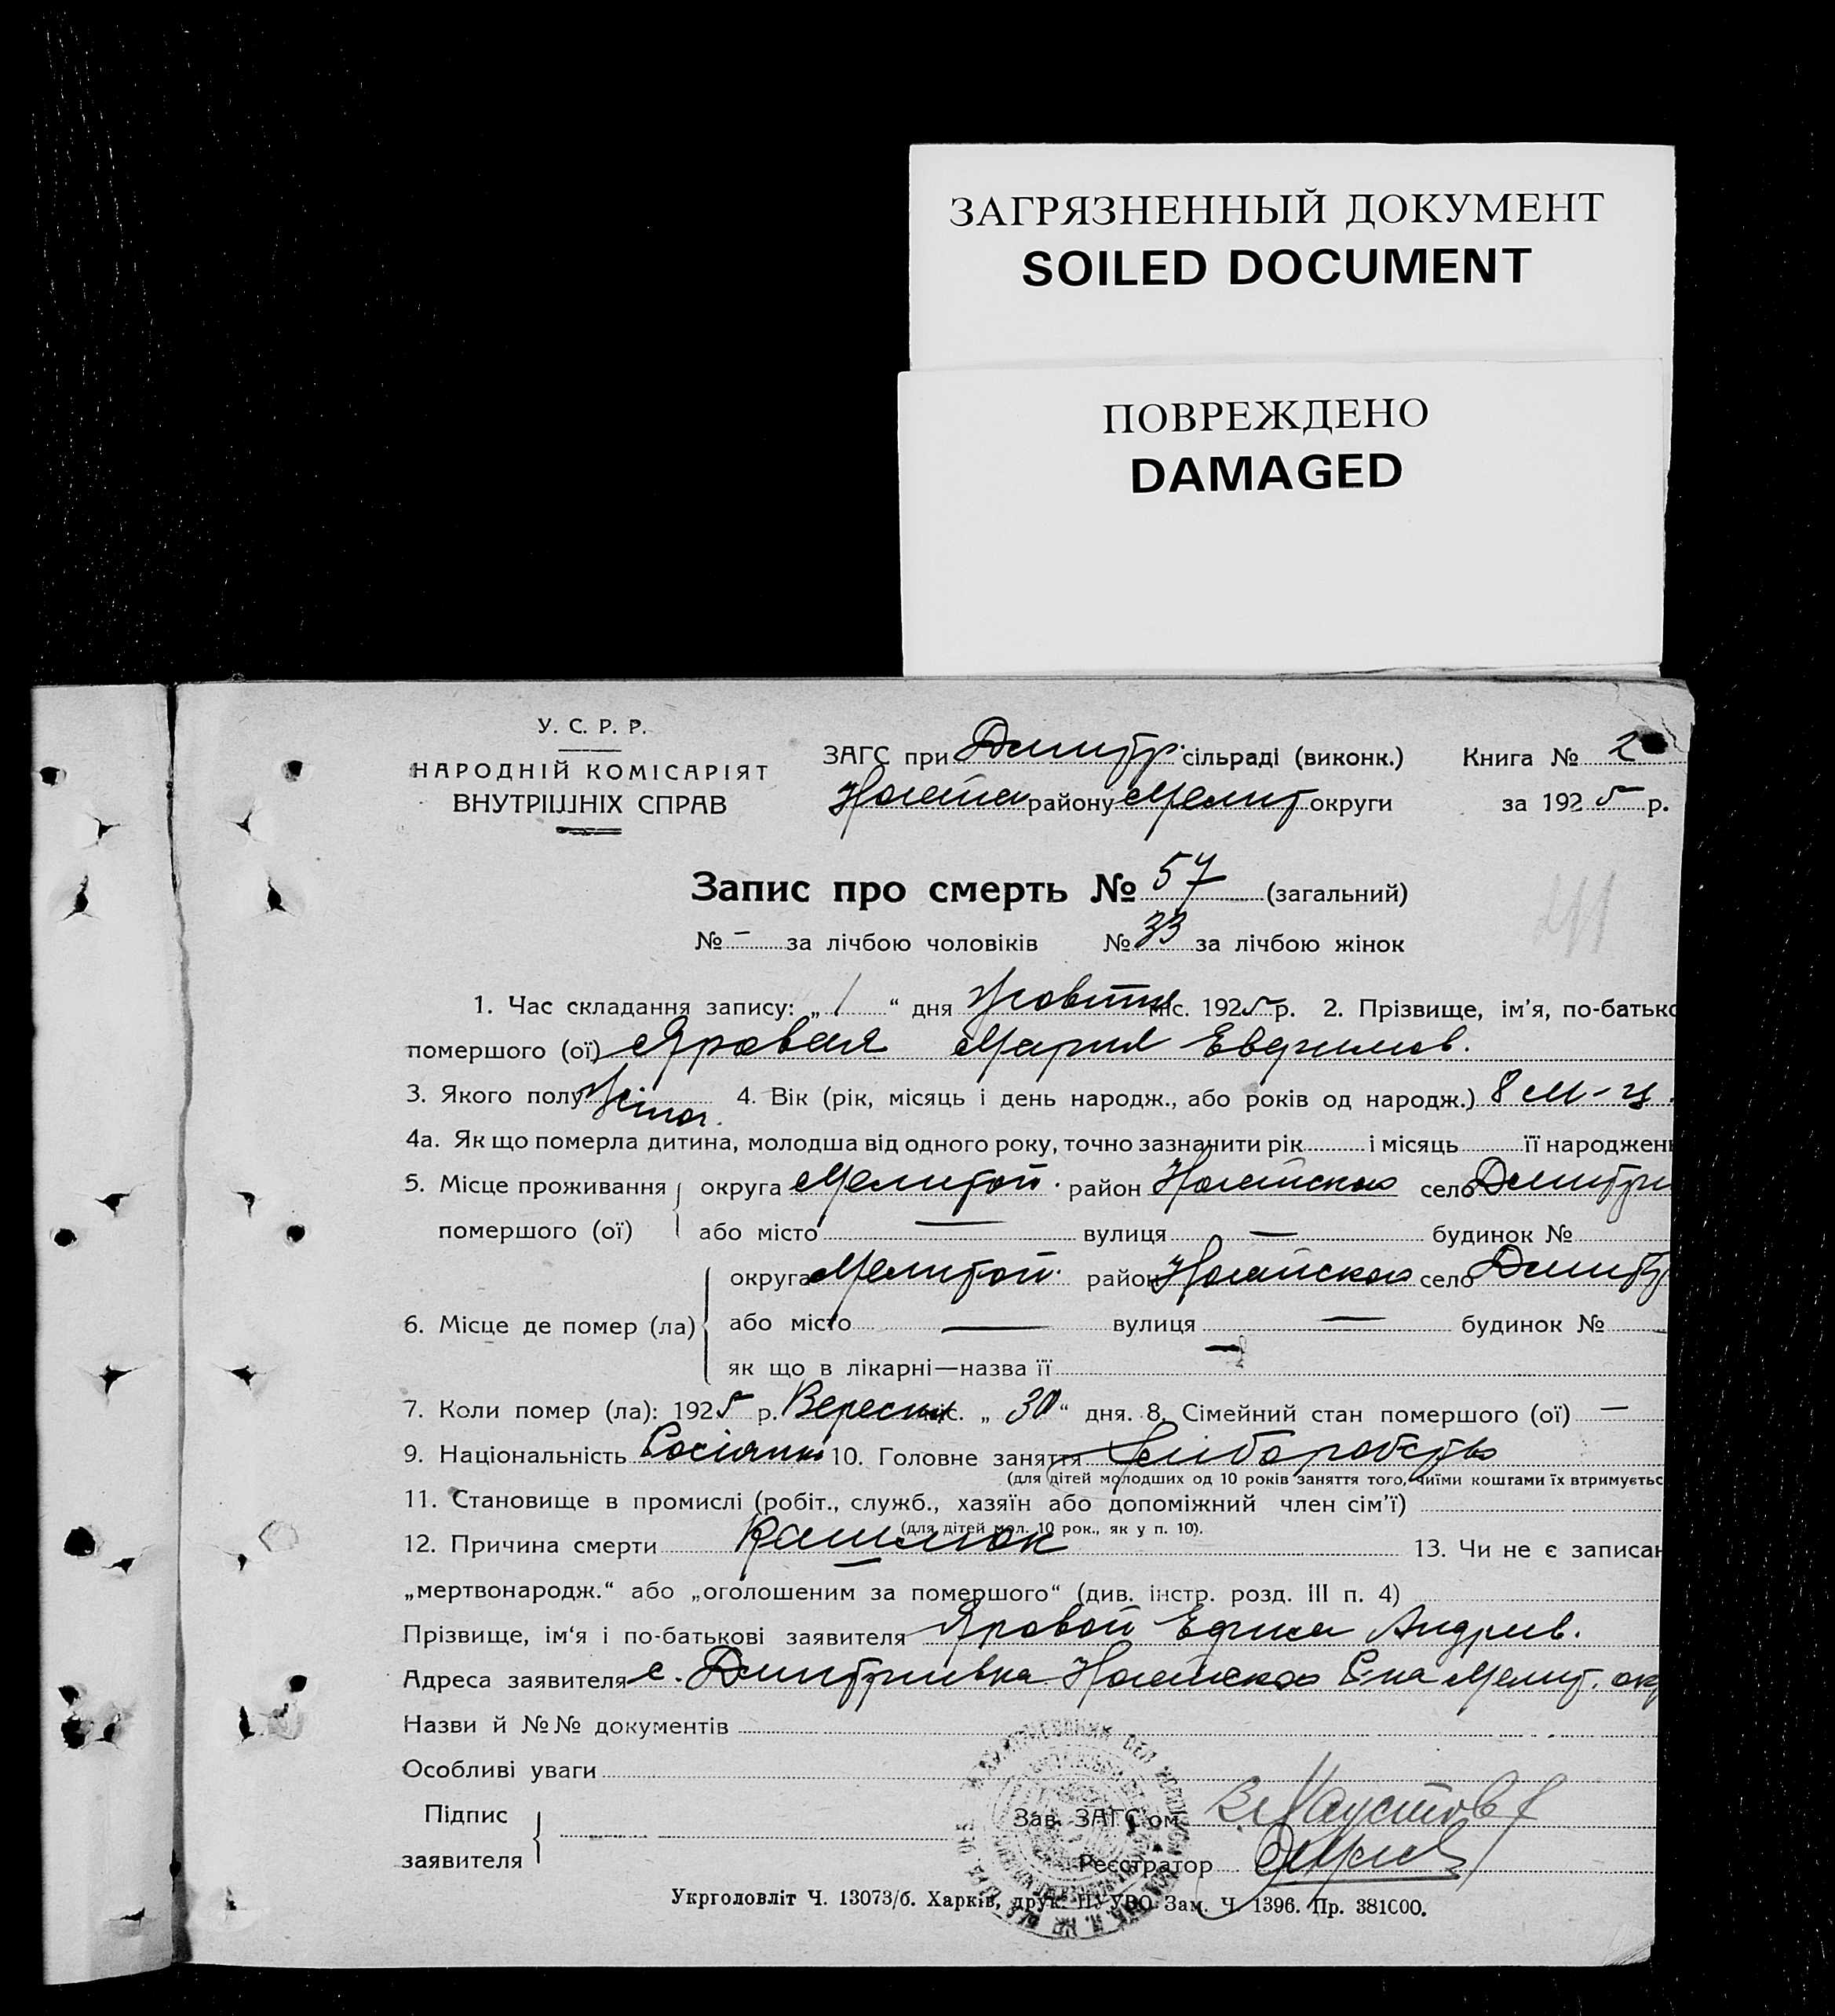 ЗАГРЯЗНЕННЫЙ ДОКУМЕНТ
SOILED DOCUMENT
ПОВРЕЖДЕНО
DAMAGED
У. С. Р. Р.
НАРОДНІЙ КОМІСАРІЯТ
ВНУТРІШНІХ СПРАВ
ЗАГС при Дмитр. сільраді (виконк.) Книга № 2
Ногайск району Мелит округи за 1925 р.
Запис про смерть № 57 (загальний)
№ – за лічбою чоловіків № 33 за лічбою жінок
1. Час складання запису: „ 1 “ дня Жовтня міс. 1925 р. 2. Прізвище, ім'я, по-батько
помершого (ої) Яровая Мария Евфимов.
3. Якого полу Жіноч. 4. Вік (рік, місяць і день народж., або років од народж.) 8 м-ц.
4а. Як що померла дитина, молодша від одного року, точно зазначити рік і місяць її народжен
5. Місце проживання округа Мелитоп. район Ногайско село Дмитри
помершого (ої) або місто — вулиця — будинок №
округа Мелитоп. район Ногайско село Дмитр
6. Місце де помер (ла) або місто — вулиця — будинок № –
як що в лікарні—назва її –
7. Коли помер (ла): 1925 р. Вересня міс. „ 30 “ дня. 8. Сімейний стан помершого (ої) —
9. Національність Росіянка 10. Головне заняття Хліборобство
(для дітей молодших од 10 років заняття того, чиїми коштами їх втримуєтьс
11. Становище в промислі (робіт., служб., хазяїн або допоміжний член сім'ї)
(для дітей мол. 10 рок., як у п. 10).
12. Причина смерти Кашлюк 13. Чи не є записан
„мертвонародж.“ або „оголошеним за помершого“ (див. інстр. розд. III п. 4)
Прізвище, ім'я і по-батькові заявителя Яровой Ефим Андрив.
Адреса заявителя с. Дмитривка Ногайско Р-на Мелит. окр
Назви й №№ документів
Особливі уваги
Підпис
заявителя
Зав. ЗАГС'ом
Реєстратор
Укрголовліт Ч. 13073/б. Харків, друк. ПУУВО Зам. Ч. 1396. Пр. 381000.